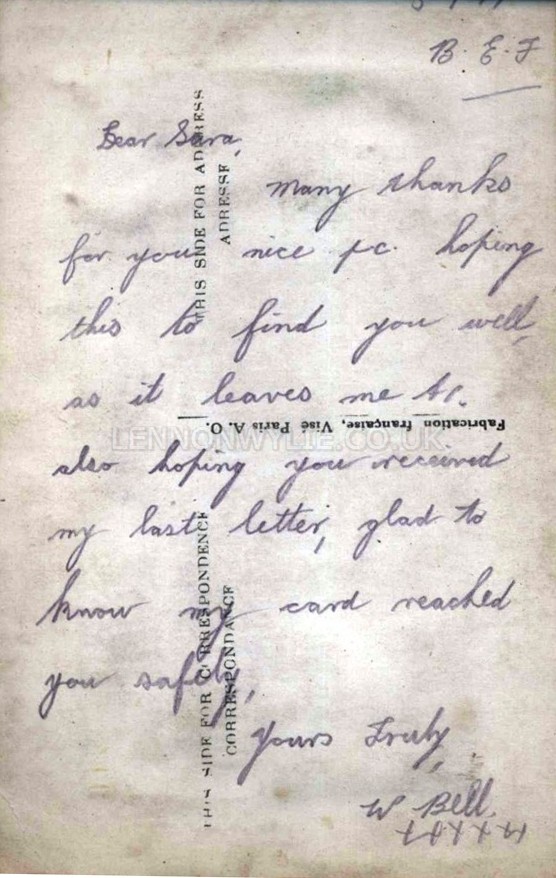 B. E. F
Dear Sara,
Many thanks
for your nice p.c. hoping
this to find you well,
as it leaves me
also hoping you received
my last letter, glad to
know my card reached
you safely,
Yours Truly,
W Bell.
xxxxxx
THIS SIDE FOR ADDRESS
ADRESSE
Fabrication française, Visé Paris A. O.
THIS SIDE FOR CORRESPONDENCE
CORRESPONDANCE
LENNONWYLIE.CO.UK